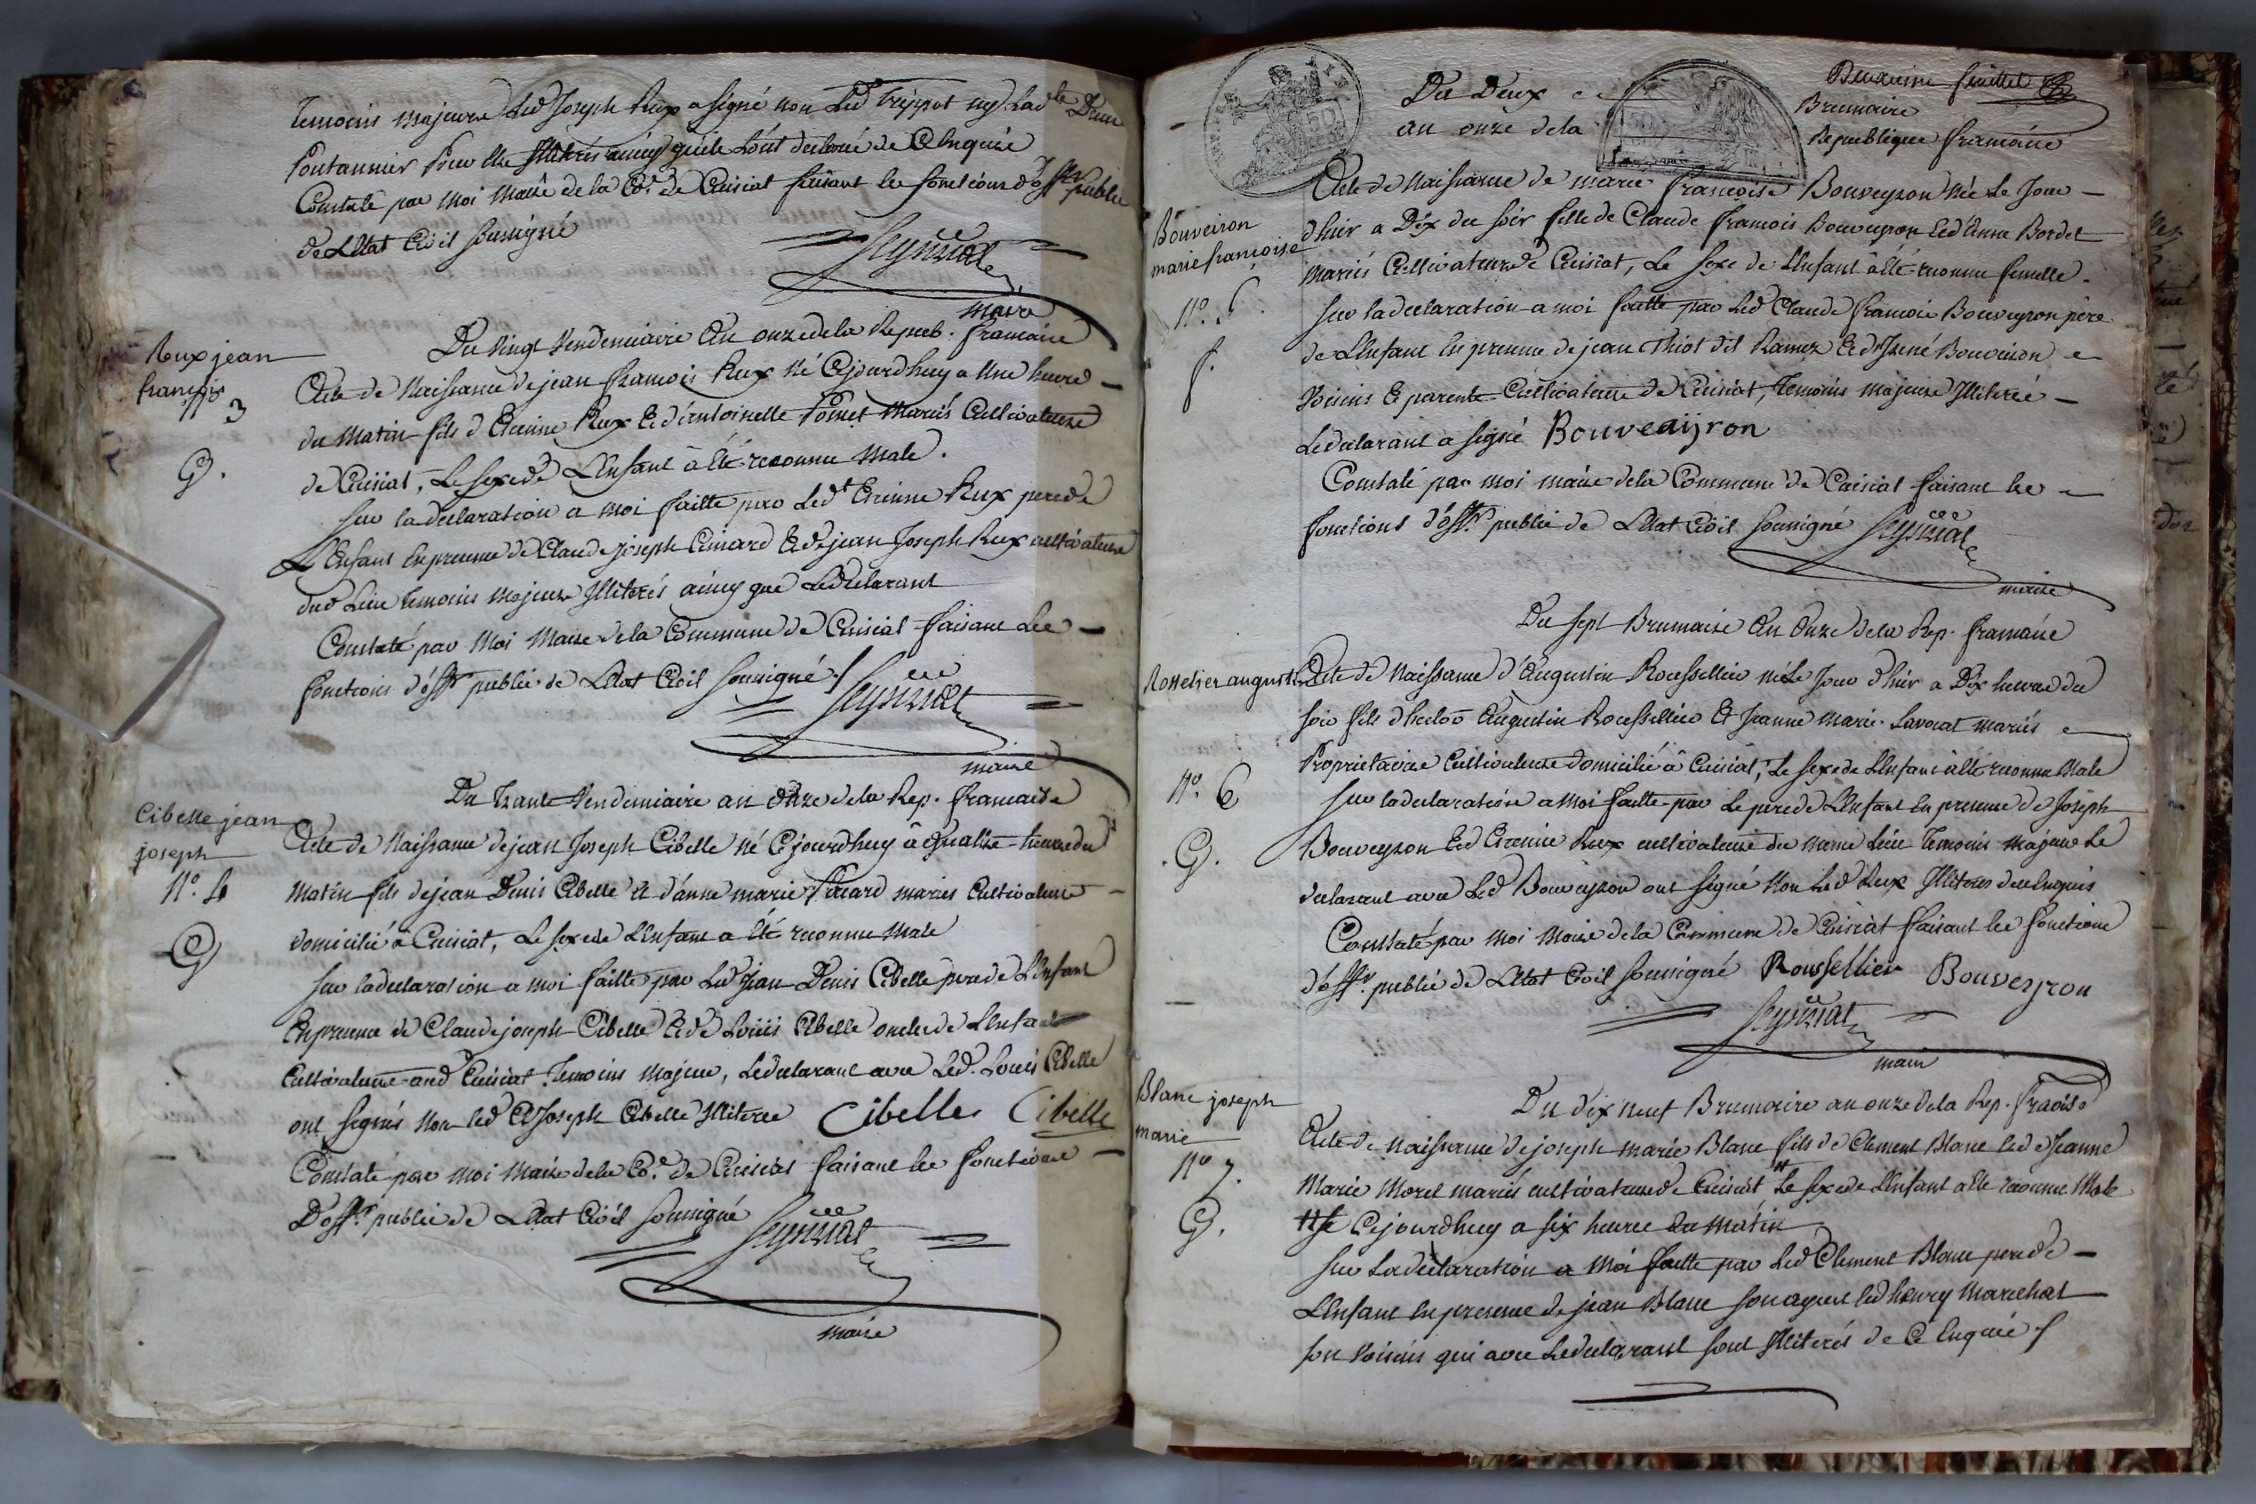 Temoins majeurs Led Joseph Rux a signé non Led Treppoz ny Lad.te Dune
Pontannier Pour être Illitérés ainsy qu'ils L'ont declaré de Ce Enquis
Constaté par moi maire de la Co.e de Cuisiat faisant les fonctions d'off.r public
de L'Etat Civil soussigné
maire
Roux jean
françois
N° 3
G.
Du vingt Vendemiaire An onze de la Repub. francaise
Acte de Naissance de jean francois Rux né Cejourdhuy a Une heure
du Matin fils d'Etienne Rux Et d'antoinette Poncet Mariés Cultivateurs
de Cuisiat, Le sexe de L'Enfant à Eté reconnu Male.
Sur la declaration a moi faitte par Led.t Etienne Rux pere de
L'Enfant En presence de Claude joseph Ecuiard Et de jean Joseph Rux cultivateurs
dud Lieu temoins majeurs Illiterés ainsy que Le declarant
Constaté par Moi Maire de la Commune de Cuisiat faisant Les
fonctions d'off.r public de L'Etat Civil soussigné
maire
Cibelle jean
joseph
N°. 4
G
Du Trante Vendemiaire an Onze de la Rep. francaise
Acte de Naissance de jean Joseph Cibelle né Cejourdhuy à Quattre heures du
Matin fils de jean Denis Cibelle et d'anne marie mariés Cultivateurs
domicilié à Cuisiat, Le sexe de L'Enfant a Eté reconnu Male
Sur la declaration a moi faitte par Led jean Denis Cibelle pere de L'Enfant
En presence de Claude joseph Cibelle Et de Louis Cibelle oncles de L'Enfant
Cultivateurs aud Cuisiat Temoins Majeurs, Le declarant avec Led. Louis Cibelle
ont signés Non led Joseph Cibelle Illiteree Cibelle Cibelle
Constaté par moi Maire de la Co.e de Cuisiat faisant les fonctions
D'off.r public de L'Etat Civil soussigné
maire
Deuxieme feuillet
Du Deux Brumaire
an onze de la Republique francaise
Bouveiron
marie françoise
N°. 5
f.
Acte de Naissance de marie francoise Bouveyron Née Le Jour
d'hier a Dix du soir fille de Claude francois Bouveyron Et d'Anne Bordet
Mariés Cultivateurs de Cuisiat, Le sexe de L'Enfant à Eté reconnu femelle.
Sur la declaration a moi faitte par Led Claude francois Bouveyron père
de L'Enfant En presence de jean Thiot dit Ramez Et d'Irené Bouveiron
Voisins Et parents Cultivateurs de Cuisiat, Temoins majeurs Illiterés
Le declarant a signé Bouveaijron
Constaté par moi maire de la Commune de Cuisiat faisant les
fonctions d'off.r public de L'Etat Civil soussigné
maire
Du sept Brumaire An Onze de la Rep. francaise
Rosselier augustin
N°. 6
G.
Acte de Naissance d'Augustin Rousselliér né Le Jour d'hier a Dix heures du
soir fils d'Augustin Rousselliér Et Jeanne Marie Lavocat mariés
Proprietaires Cultivateurs domicilié à Cuisiat, Le sexe de L'Enfant à Eté reconnu Male
Sur la declaration a moi faitte par Le pere de L'Enfant En presence de Joseph
Bouveyron Et d'Etienne Rux cultivateurs du meme Lieu Temoins Majeurs Le
declarant avec Led Bouveyron ont signé Non Led Rux Illiteres de ce Enquis
Constaté par moi Maire de la Commune de Cuisiat faisant les fonctions
d'off.r public de L'Etat Civil soussigné Roussellier Bouveyron
maire
Blanc joseph
marie
N° 7.
G.
Du dix neuf Brumaire an onze de la Rep. francaise
Acte de Naissance de joseph marie Blanc fils de Clement Blanc Et de Jeanne
Marie Morel mariés cultivateurs de Cuisiat Le sexe de L'Enfant a Eté reconnu Male
Cejourdhuy a six heures du Matin
Sur La declaration a Moi faitte par Led Clement Blanc pere de
L'Enfant En presence de jean Blanc son ayeul Et d'henry Marechal
son Voisin qui avec Le declarant sont Illiterés de Ce Enquis